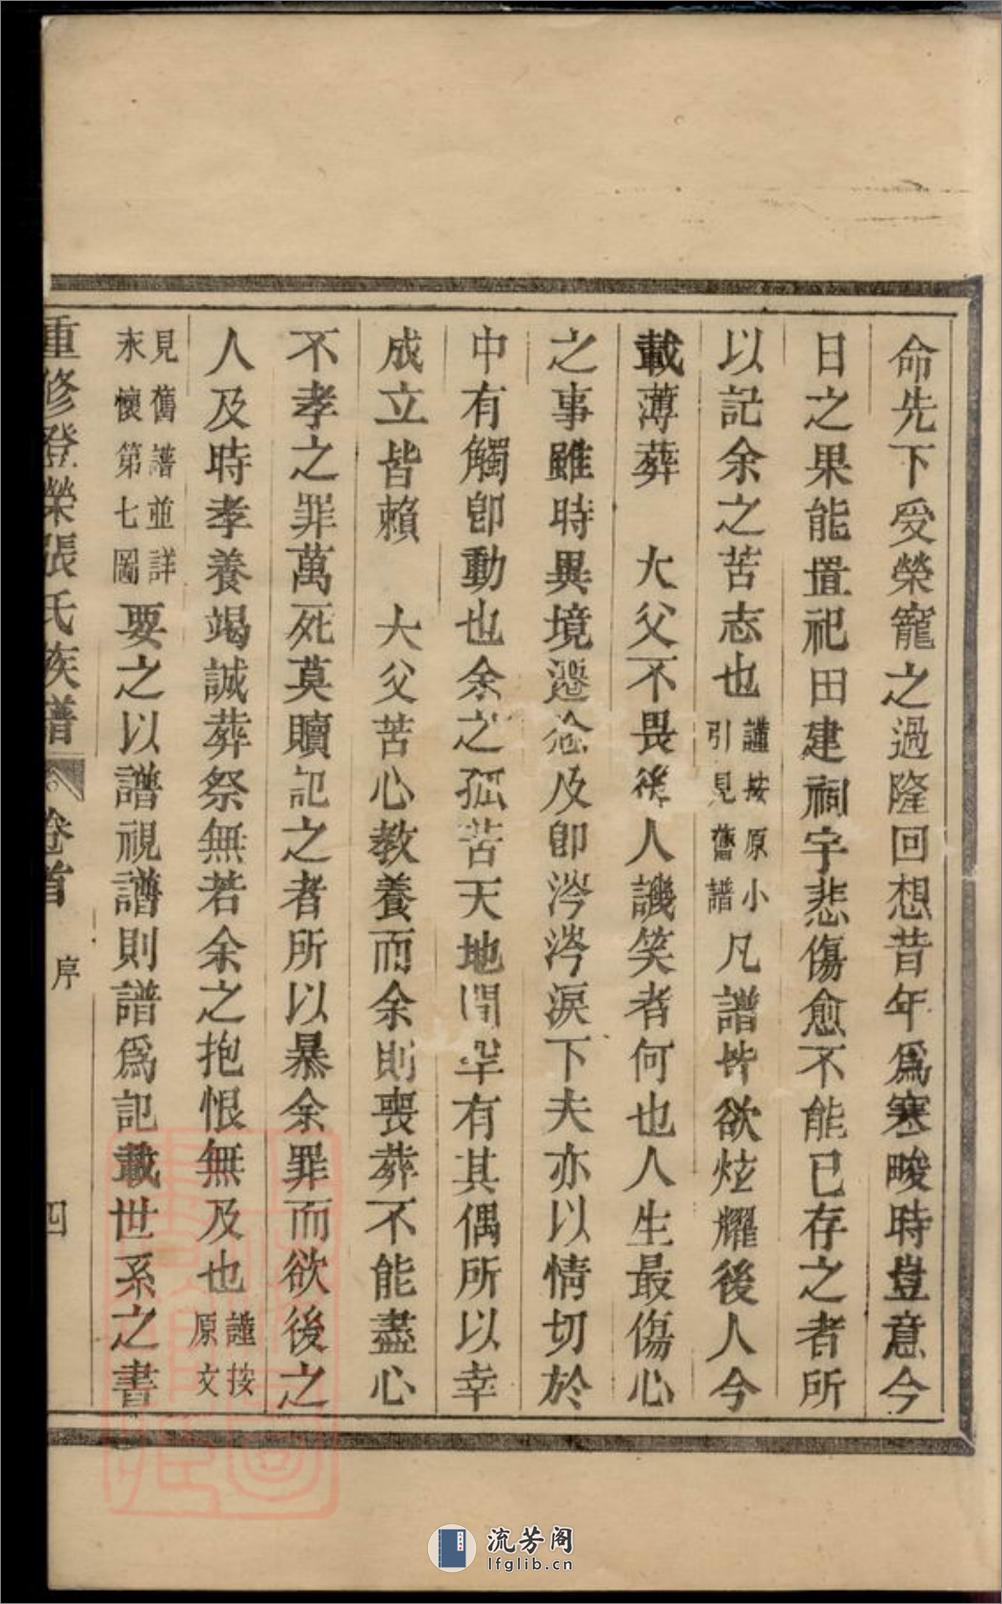 命先下受榮寵之過隆回想昔年爲寒畯時豈意今
日之果能置祀田建祠宇悲傷愈不能已存之者所
以記余之苦志也謹按原小引見舊譜凡譜皆欲炫耀後人今
載薄葬　大父不畏後人譏笑者何也人生最傷心
之事雖時異境遷念及卽涔涔淚下夫亦以情切於
中有觸卽動也余之孤苦天地間罕有其偶所以幸
成立皆賴　大父苦心教養而余則喪葬不能盡心
不孝之罪萬死莫贖記之者所以暴余罪而欲後之
人及時孝養竭誠葬祭無若余之抱恨無及也謹按原文
見舊譜並詳永懷第七圖要之以譜視譜則譜爲記載世系之書
重修登榮張氏族譜　卷首　序　四
流芳阁
lfglib.cn